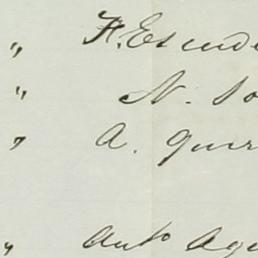 " H. Escude
" N. So
" A. Guer
" Anto Agu